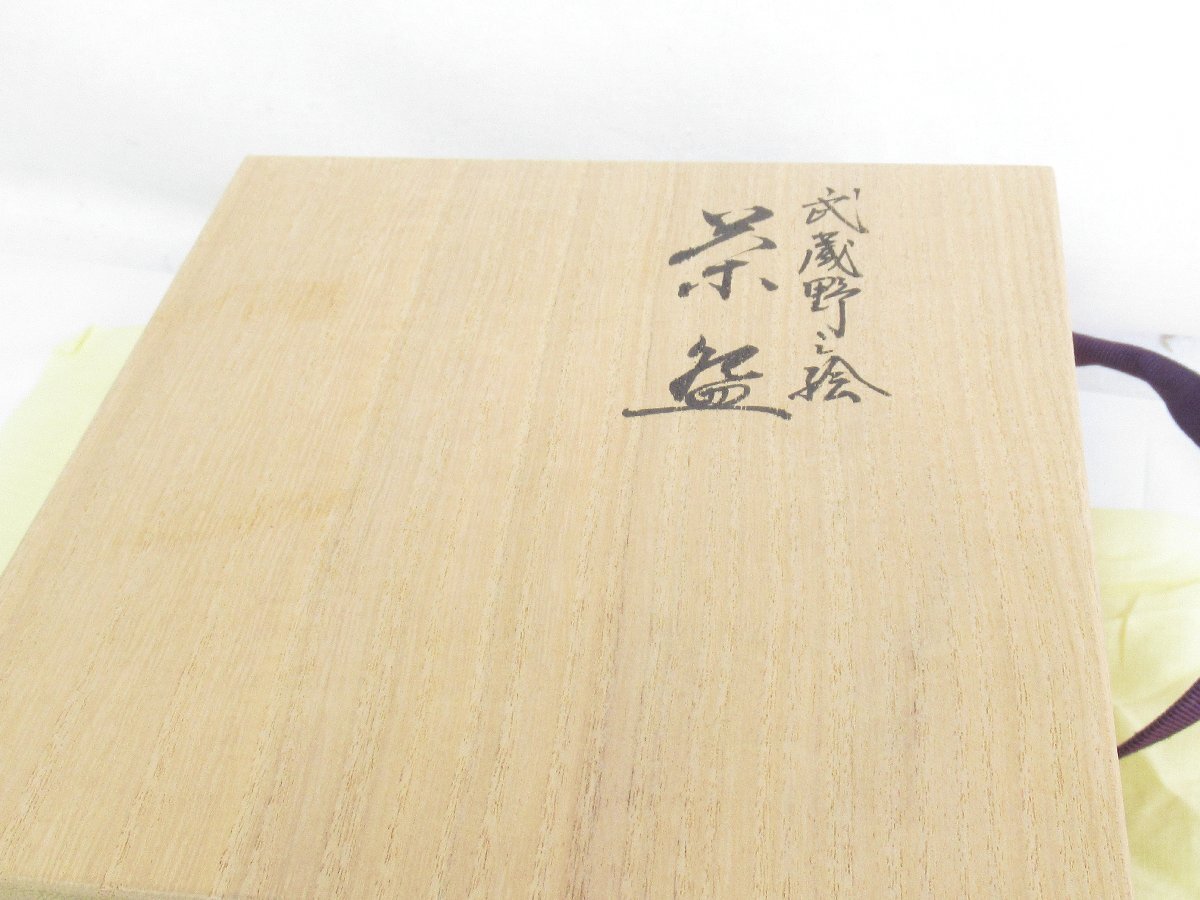 武蔵野之絵
茶盌